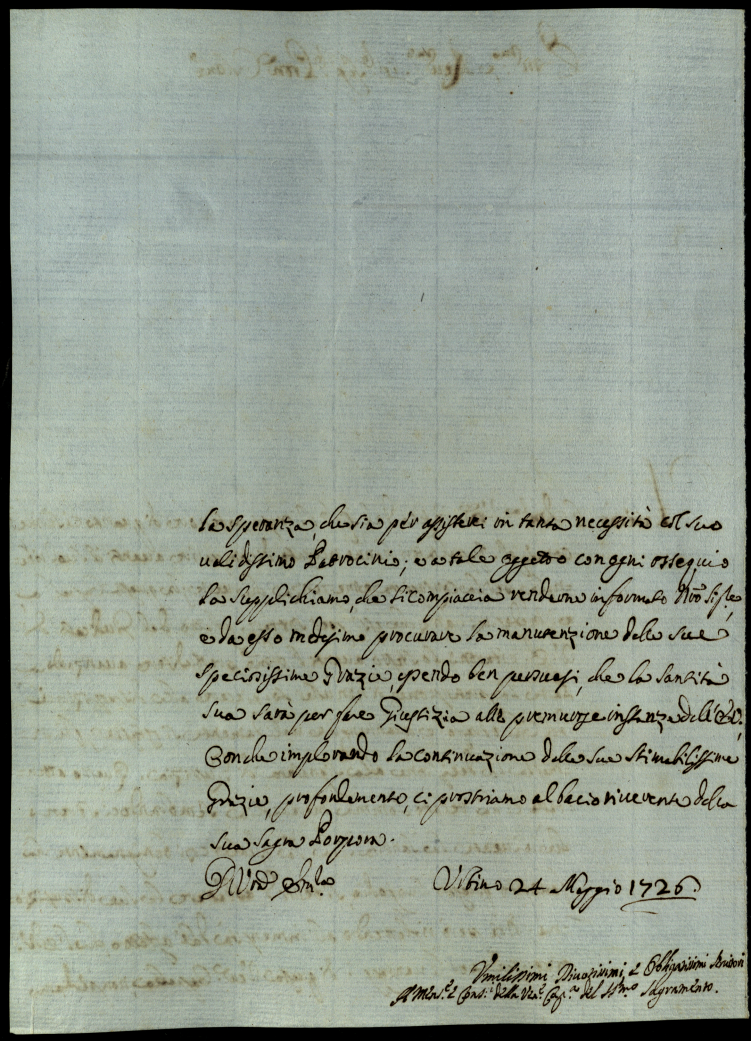 la speranza, che sia per assisterci in tanta necessità col suo
validissimo Patrocinio; e a tale oggetto con ogni ossequio
la supplichiamo, che si compiaccia renderne informato Nrõ Sigre,
e da esso medesimo procurare la manutenzione delle sue
speciosissime Grazie, essendo ben persuasi, che la Santità
sua sarà per fare Giustizia alle premurose instanze dell'E.V.
Con che implorando la continuazione delle sue stimatissime
Grazie, profondamente, ci prostriamo al bacio riverente della
sua Sagra Porpora.
Di Vrã Emza
Urbino 24 Maggio 1726.
Umilissimi Divotissimi, e Obbligatissimi Servitori
della Vene Compa del SSmo Sagramento.